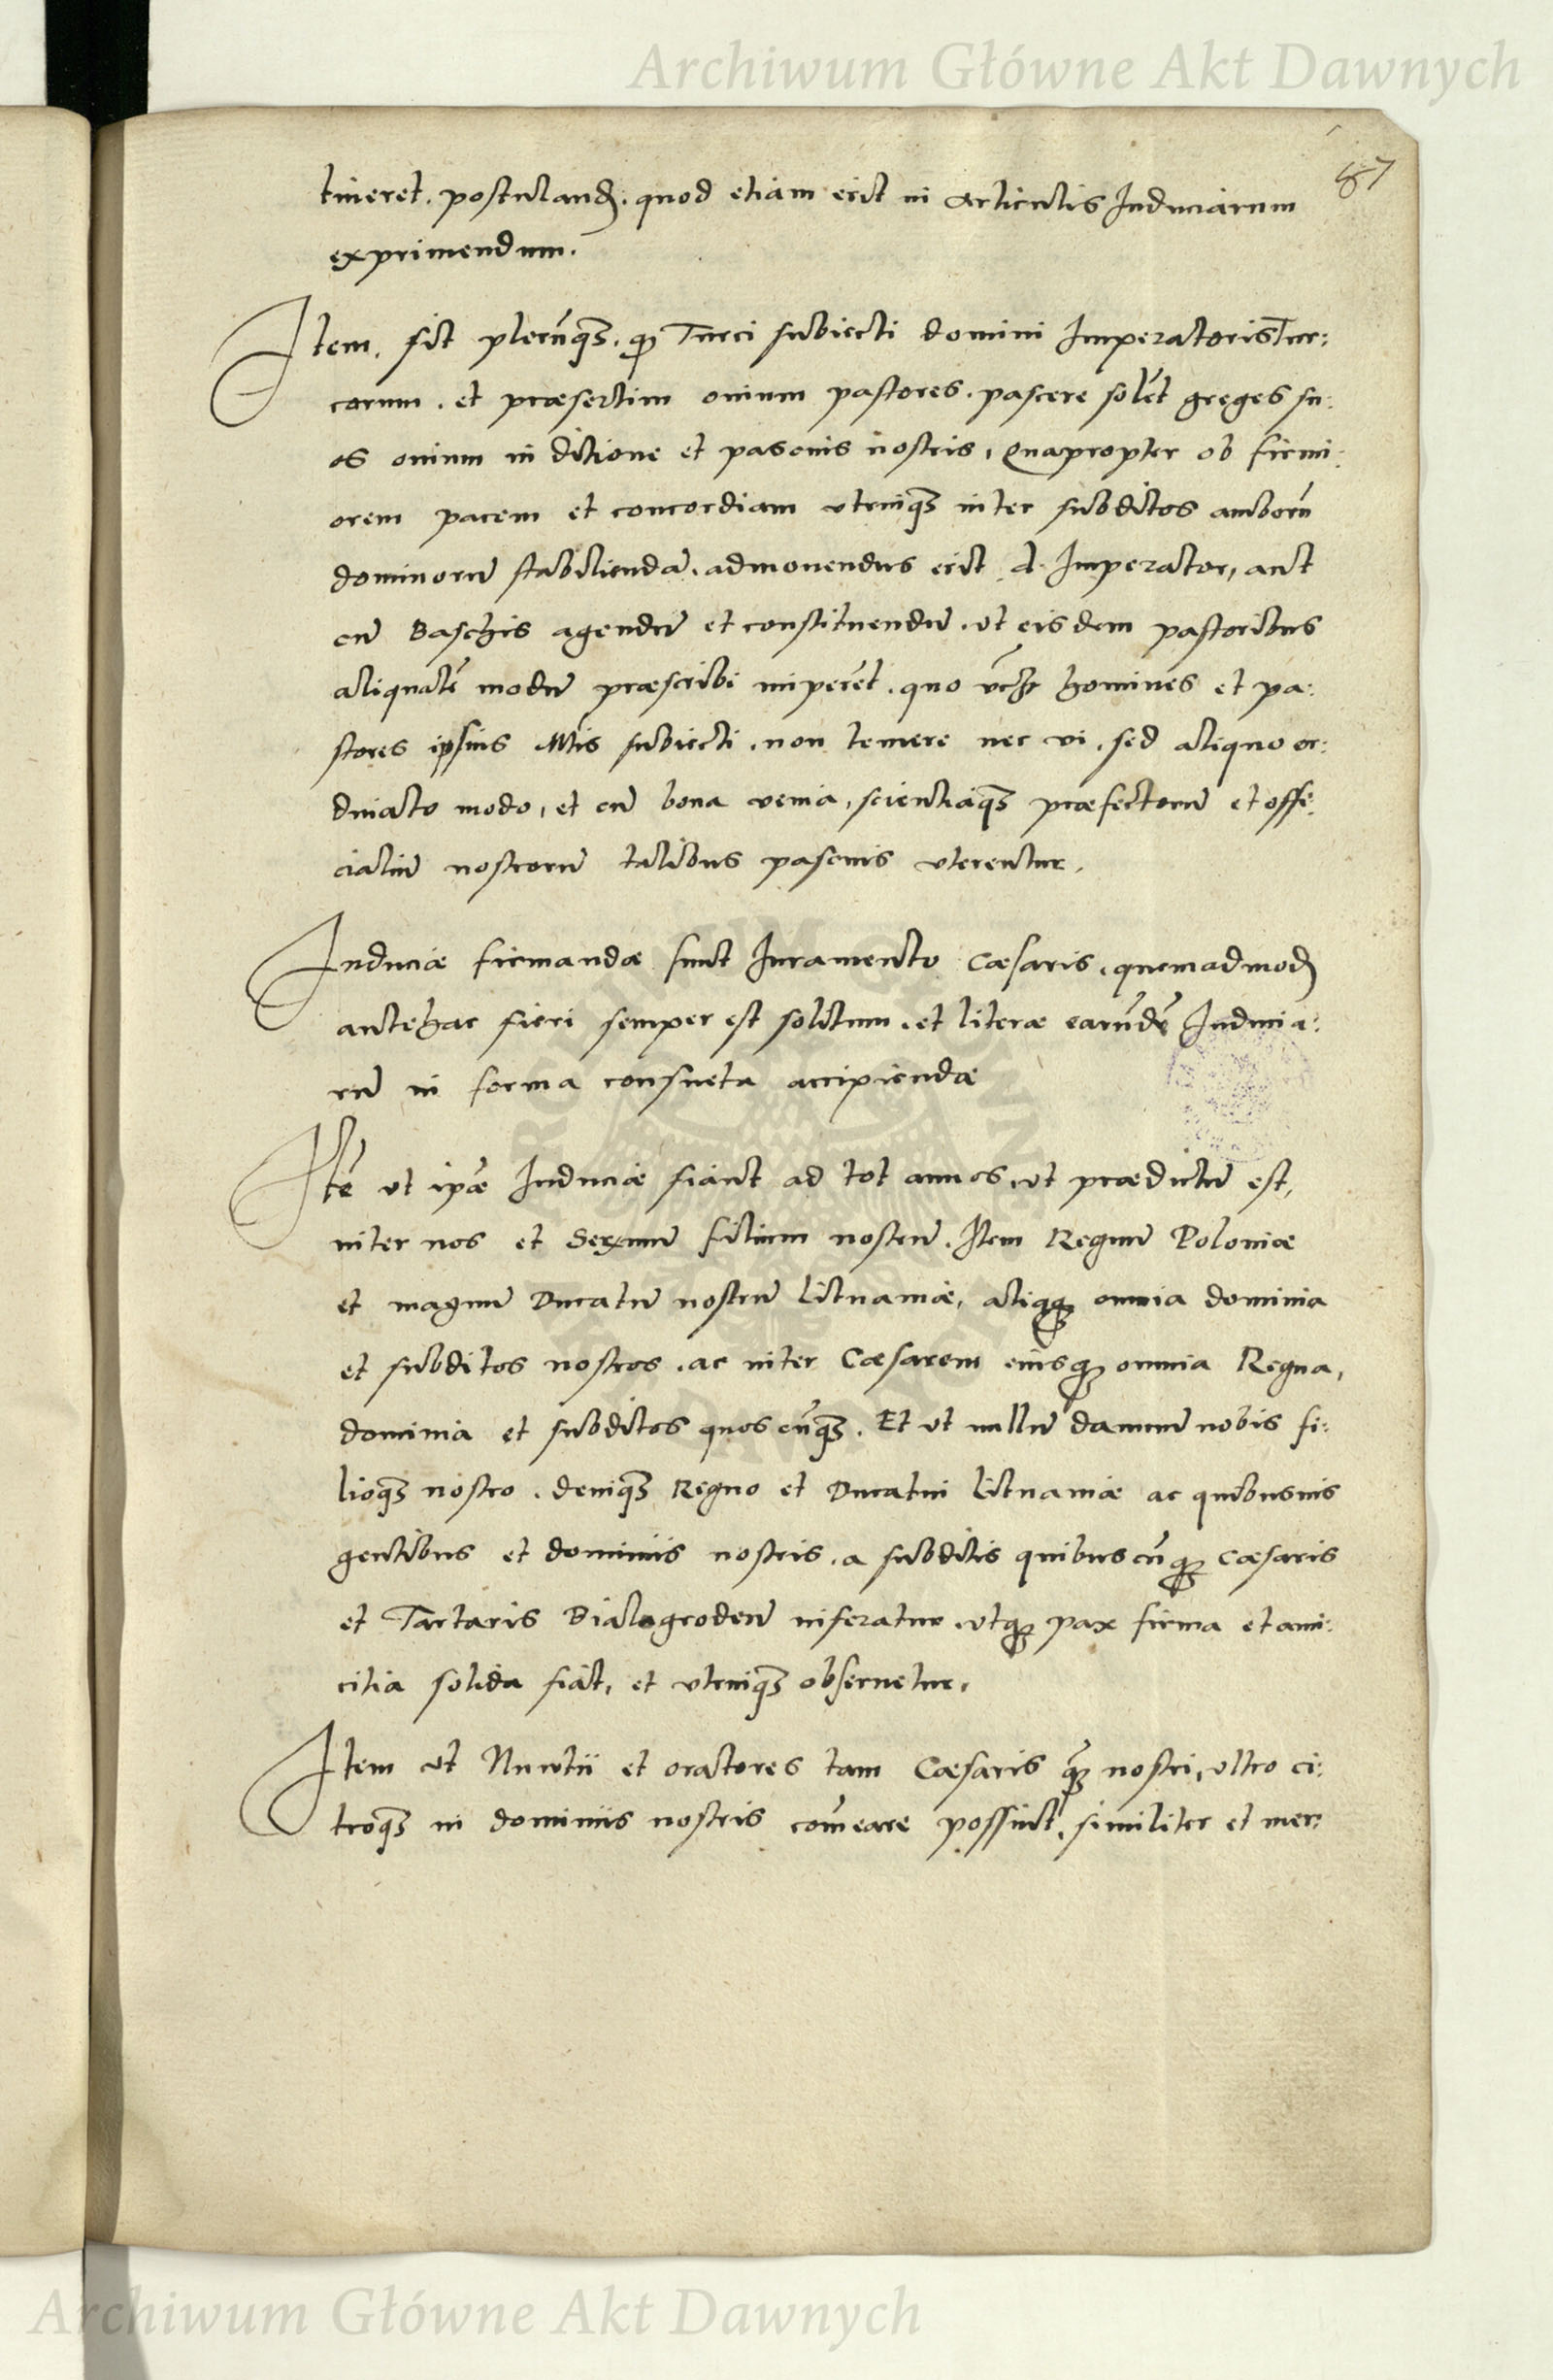 Archiwum Główne Akt Dawnych
87
tineret. postuland. quod etiam erit in articulis Induciarum
exprimendum.
Item. fit plerūq₃. qƺ Turci subiecti domini Imperatoris Tur:
corum. et præsertim ouium pastores. pascere solēt greges su:
os ouium in ditione et pascuis nostris, Quapropter ob firmi:
orem pacem et concordiam vtrinq₃ inter subditos amborū
dominorū stabiliendā. admonendus erit d. Imperator, aut
cū Baschis agendū et constituendū. vt eisdem pastoribus
aliquatē modū præscribi imperēt. quo homines et pa:
stores ipsius Mtis subiecti. non temere nec vi. sed aliquo or:
dinato modo, et cū bona venia, scientiaq₃ præfectorū et offi:
cialiū nostrorū talibus pascuis vterentur.
Induciæ firmandæ sunt Iuramento Cæsaris. quemadmod
antehac fieri semper est solitum. et literæ earūdē Inducia:
rū in forma consueta accipiendæ
Itē vt ipæ Induciæ fiant ad tot annos, vt prædictū est,
inter nos et Serxmū filium nostrū. Item Regnū Poloniæ
et magnū Ducatū nostrū Lituaniæ, aliaqƺ omnia dominia
et subditos nostros. ac inter Cæsarem eiusqƺ omnia Regna,
dominia et subditos quoscūq₃. Et vt nullū damnū nobis fi:
lioq₃ nostro. deniq₃ Regno et Ducatui Lituaniæ ac quibusuis
gentibus et dominiis nostris. a subditis quibuscūqƺ Cæsaris
et Tartaris Bialogrodeñ inferatur. vtqƺ pax firma et ami:
citia solida fiat, et vtrinq₃ obseruetur.
Item vt Nuntii et oratores tam Cæsaris qƺ nostri, vltro ci:
troq₃ in dominiis nostris com̄eare possint. similiter et mer:
Archiwum Główne Akt Dawnych